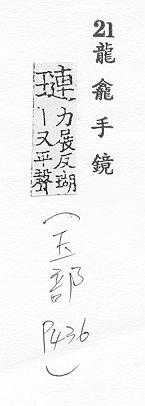 21 龍龕手鏡
璉力展反瑚
丨又平聲
(玉部 P436)